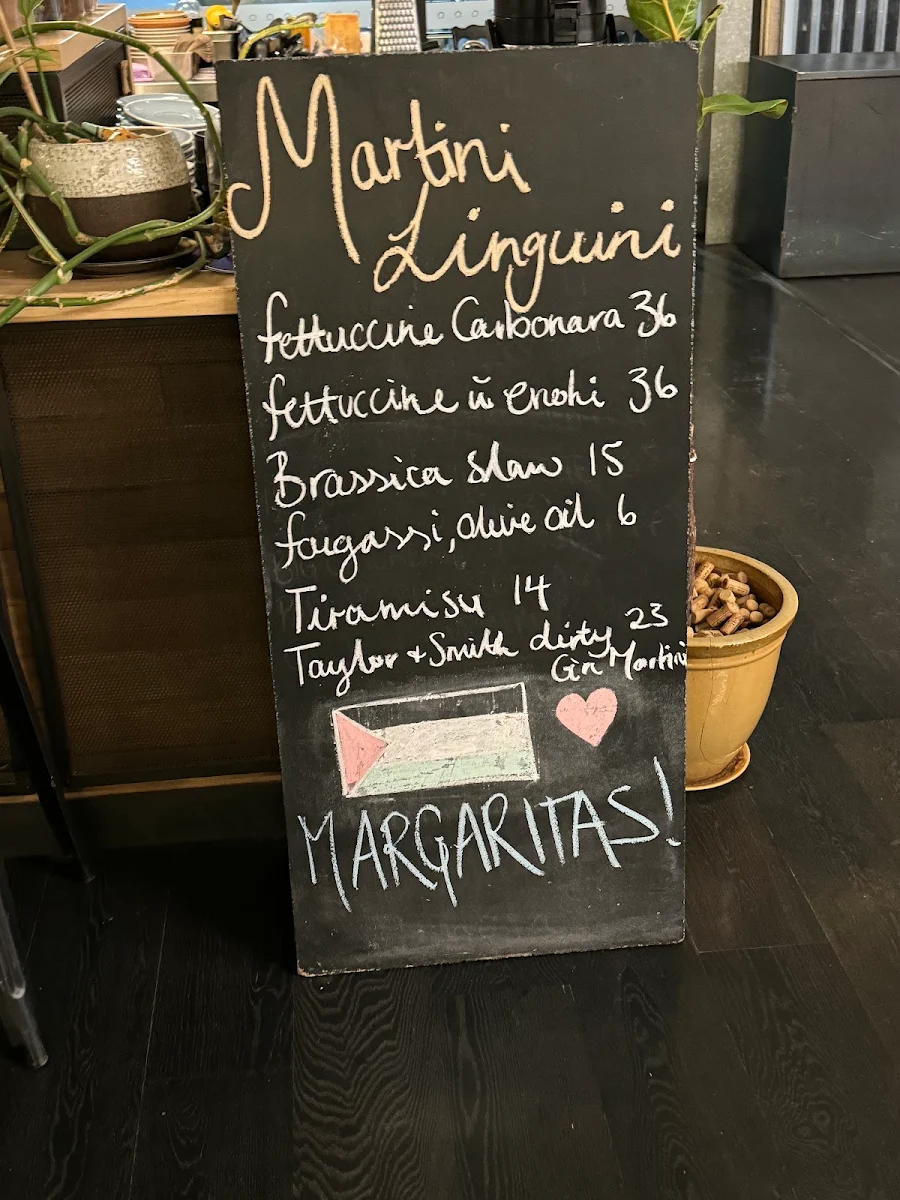 Martini
Linguini
fettuccine Carbonara 36
fettuccine w enoki 36
Brassica Slaw 15
fougassi, olive oil 6
Tiramisu 14
Taylor + Smith dirty 23
Gin Martini
MARGARITAS!